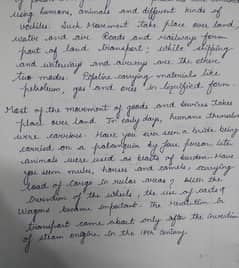 using humans, animals and different kinds of
vechiles. Such Movement take place over land,
water and air. Roads and railways form
part of land transport; while shipping
and waterways and airways are the other
two modes. Pipeline carrying materials like
petroleum, gas and ores in liquified form.
Most of the movement of goods and services takes
place over land. In early days, humans themselves
were carriers. Have you ever seen a bride being
carried on a palanquin by four person. Later
animals were used as beasts of burden. Have
you seen mules, horses and camels, carrying
load of cargo in rular areas? With the
invention of the wheels, the use of carts &
Wagons became important. The revolution in
transport came about only after the invention
of steam engine in the 18th century.